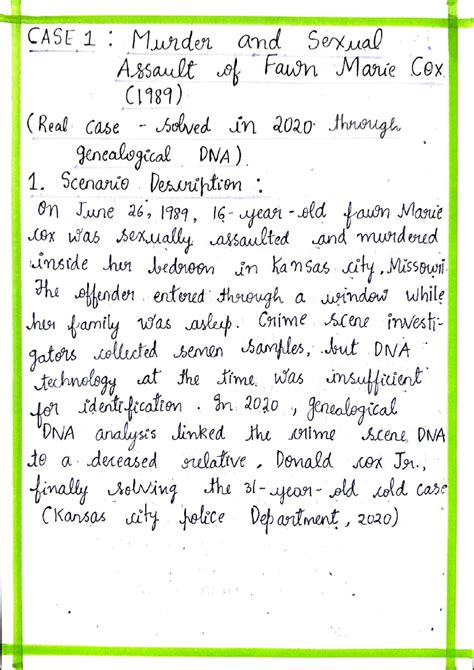 CASE 1 : Murder and Sexual
Assault of Fawn Marie Cox
(1989)
(Real case - solved in 2020 through
genealogical DNA).
1. Scenario Description :
On June 26, 1989, 16-year-old fawn Marie
cox was sexually assaulted and murdered
inside her bedroon in Kansas city, Missouri.
The offender entered through a window while
her family was asleep. Crime scene investi-
gators collected semen samples, but DNA
technology at the time was insufficient
for identification. In 2020, genealogical
DNA analysis linked the crime scene DNA
to a deceased relative, Donald cox Jr.,
finally solving the 31-year-old cold case
(Kansas city police Department, 2020)